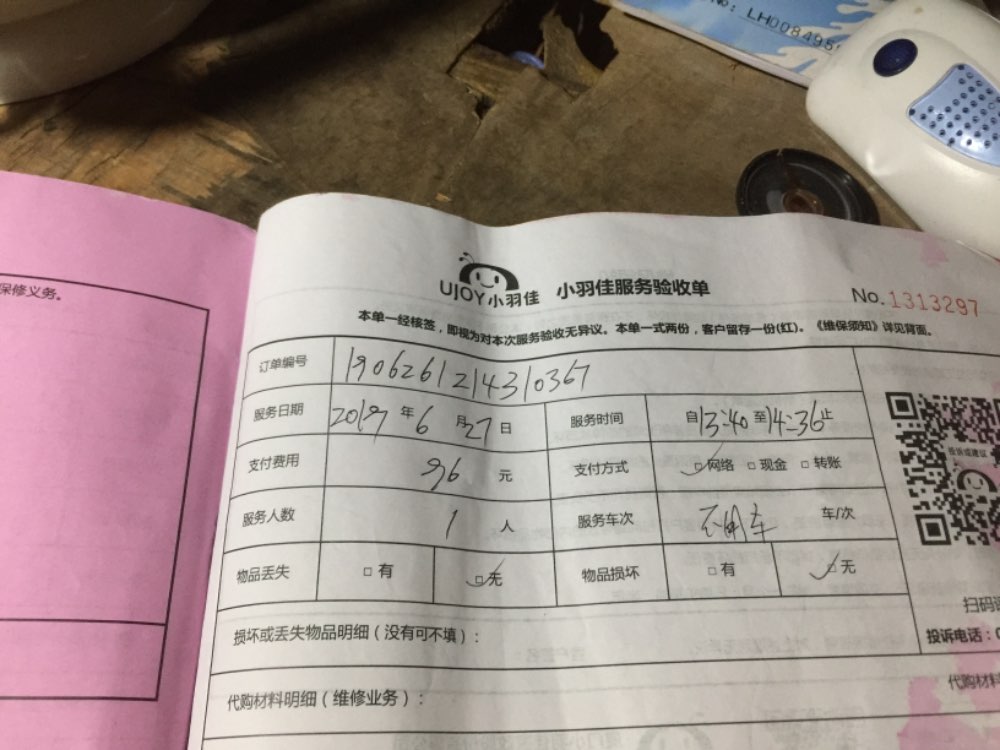 No: LH0084959
保修义务。
UJOY小羽佳 小羽佳服务验收单
No.1313297
本单一经核签，即视为对本次服务验收无异议。本单一式两份，客户留存一份(红)。《维保须知》详见背面。
订单编号 1906261214310367
服务日期 2019年6月27日 服务时间 自13:40至14:36止
支付费用 96 元 支付方式 □网络 □现金 □转账
服务人数 1 人 服务车次 不用车 车/次
物品丢失 □有 □无 物品损坏 □有 □无
投诉或建议
扫码
投诉电话：0
损坏或丢失物品明细（没有可不填）：
代购材料明细（维修业务）：
代购材料